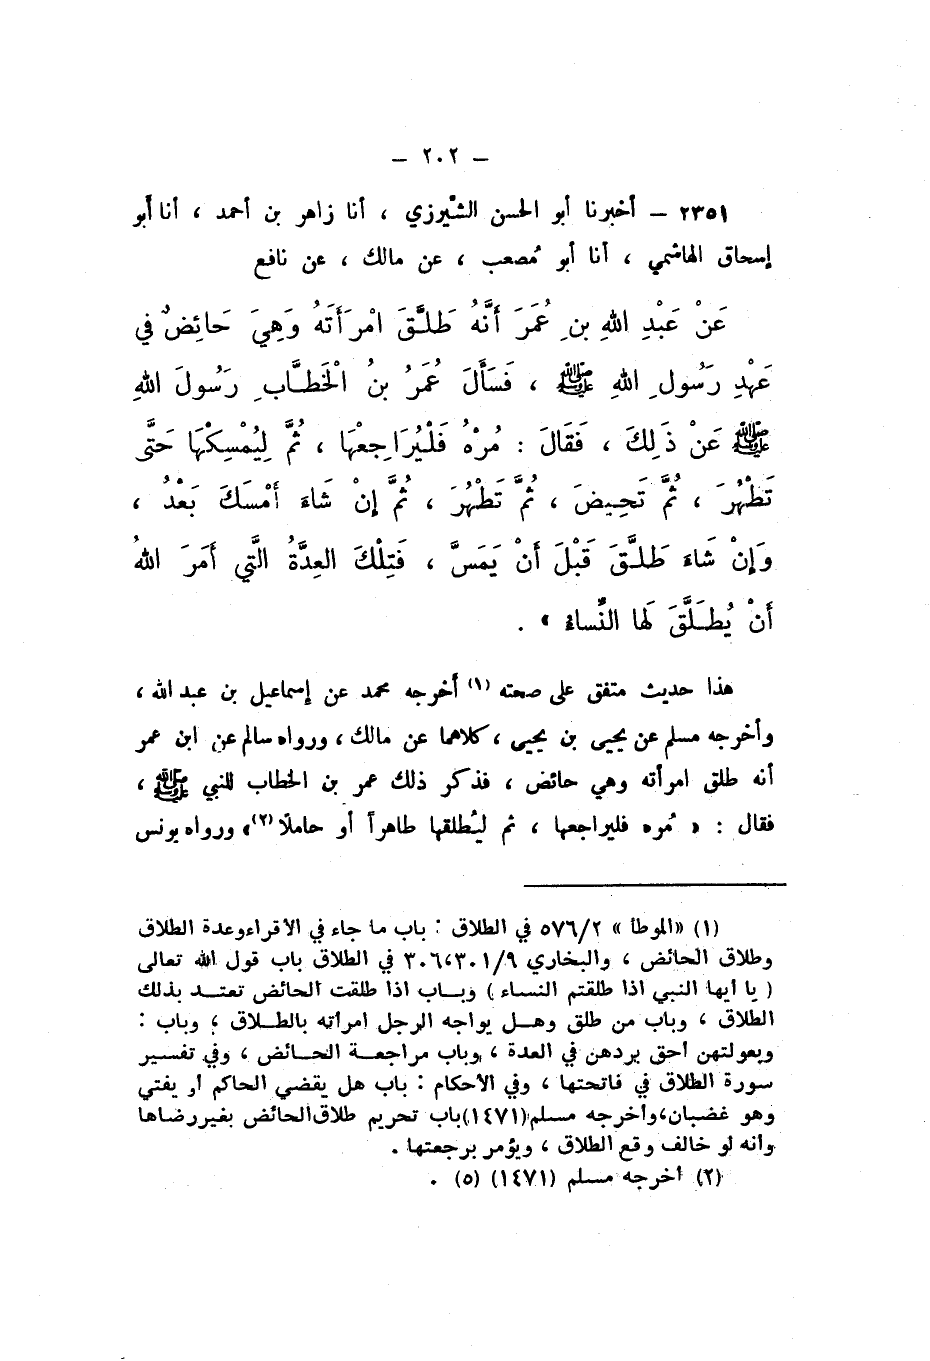 – ٢٠٢ –
٢٣٥١ – أخبرنا أبو الحسن الشِّيرزي ، أنا زاهر بن أحمد ، أنا أبو
إسحاق الهاشمي ، أنا أبو مُصعب ، عن مالك ، عن نافع
عَنْ عَبْدِ اللهِ بنِ عُمَرَ أَنَّهُ طَلَّقَ امْرَأَتَهُ وَهِيَ حَائِضٌ في
عَهْدِ رَسُولِ اللهِ ﷺ ، فَسَأَلَ عُمَرُ بنُ الْخَطَّابِ رَسُولَ اللهِ
ﷺ عَنْ ذَلِكَ ، فَقَالَ : مُرْهُ فَلْيُرَاجِعْهَا ، ثُمَّ لِيُمْسِكْهَا حَتَّى
تَطْهُرَ ، ثُمَّ تَحِيضَ ، ثُمَّ تَطْهُرَ ، ثُمَّ إِنْ شَاءَ أَمْسَكَ بَعْدُ ،
وَإِنْ شَاءَ طَلَّقَ قَبْلَ أَنْ يَمَسَّ ، فَتِلْكَ العِدَّةُ الَّتِي أَمَرَ اللهُ
أَنْ يُطَلَّقَ لَها النِّساءُ » .
هذا حديث متفق على صحته (١) أخرجه محمد عن إسماعيل بن عبد الله ،
وأخرجه مسلم عن يحيى بن يحيى ، كلاهما عن مالك ، ورواه سالم عن ابن عمر
أنه طلق امرأته وهي حائض ، فذكر ذلك عمر بن الخطاب للنبي ﷺ ،
فقال : « مُره فليراجعها ، ثم ليُطلقها طاهراً أو حاملًا (٢) » ورواه يونس
(١) «الموطأ » ٥٧٦/٢ في الطلاق : باب ما جاء في الاقراء وعدة الطلاق
وطلاق الحائض ، والبخاري ٣٠١/٩، ٣٠٦ في الطلاق باب قول الله تعالى
( يا أيها النبي اذا طلقتم النساء ) وبـاب اذا طلقت الحائض تعتـد بذلك
الطلاق ، وباب من طلق وهـل يواجه الرجل امرأته بالطـلاق ، وباب :
وبعولتهن أحق بردهن في العدة ، وباب مراجعـة الحـائض ، وفي تفسير
سورة الطلاق في فاتحتها ، وفي الأحكام : باب هل يقضي الحاكم أو يفتي
وهو غضبان، وأخرجه مسلم (١٤٧١) باب تحريم طلاق الحائض بغير رضاها
وأنه لو خالف وقع الطلاق ، ويؤمر برجعتها .
(٢) أخرجه مسلم (١٤٧١) (٥) .